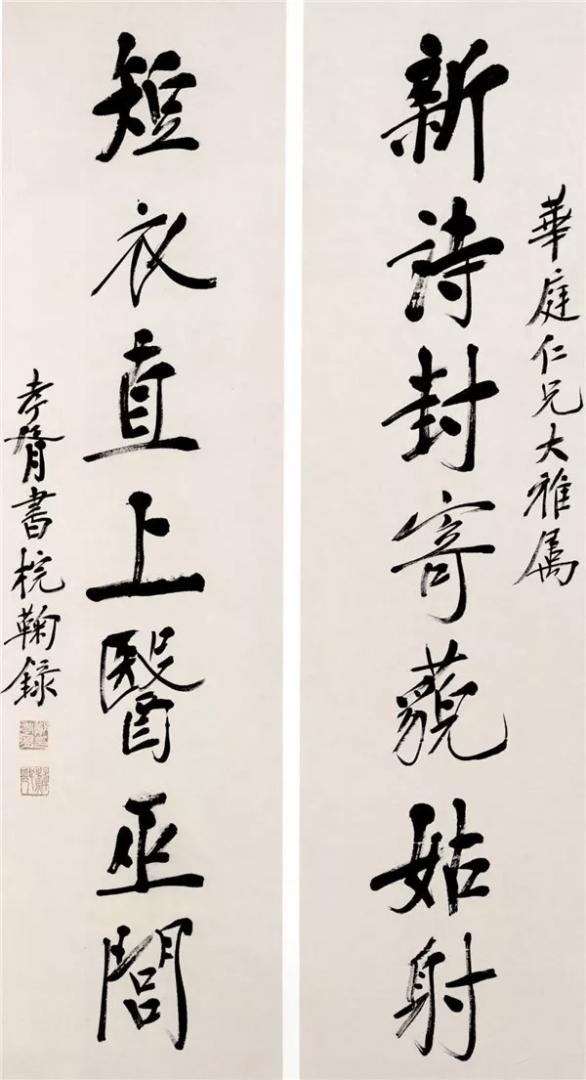 華庭仁兄大雅属
新詩封寄藐姑射
短衣直上醫巫閭
孝胥書梡鞠録